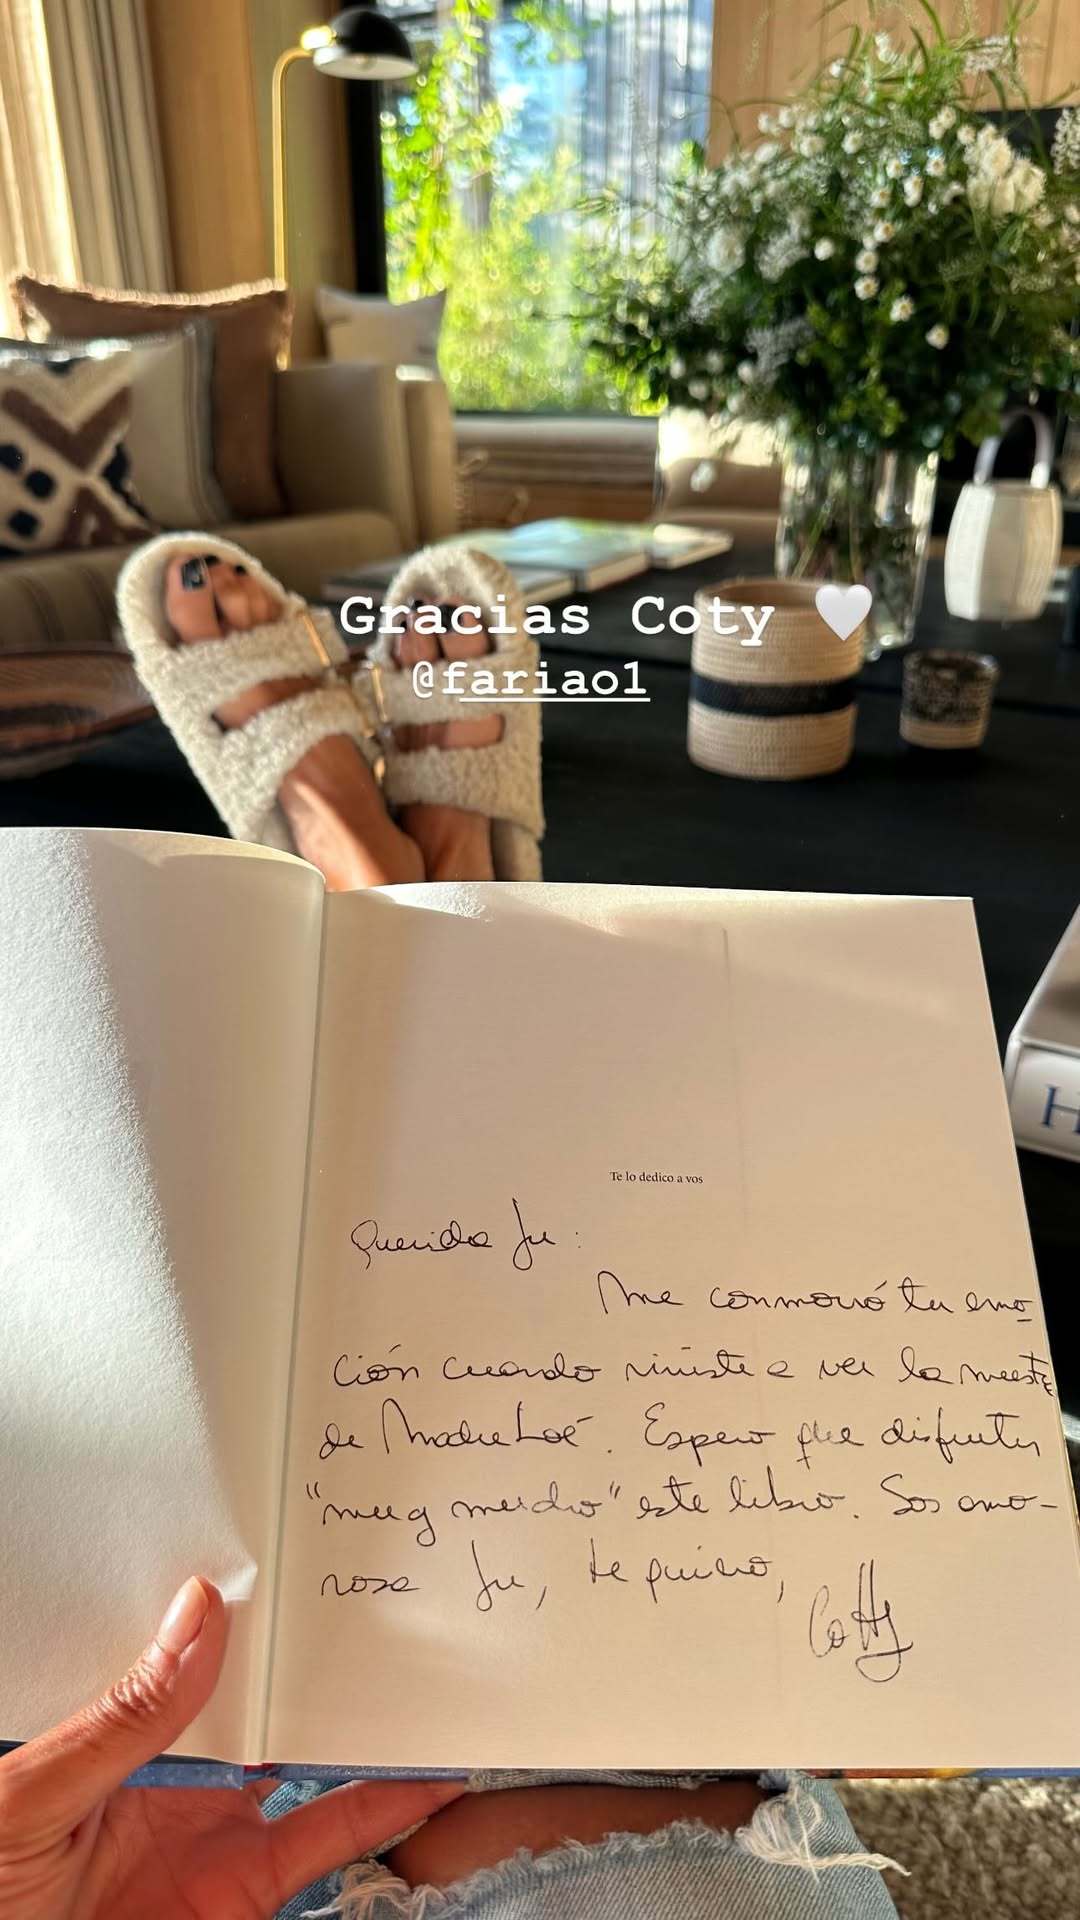 Gracias Coty 🤍
@fariao1
H
Te lo dedico a vos
Querida Ju:
Me conmovió tu emo
ción cuando viniste a ver la muestra
de Madre Loé. Espero que disfrutes
"muy mucho" este libro. Sos amo-
rosa Ju, te quiero,
Coty